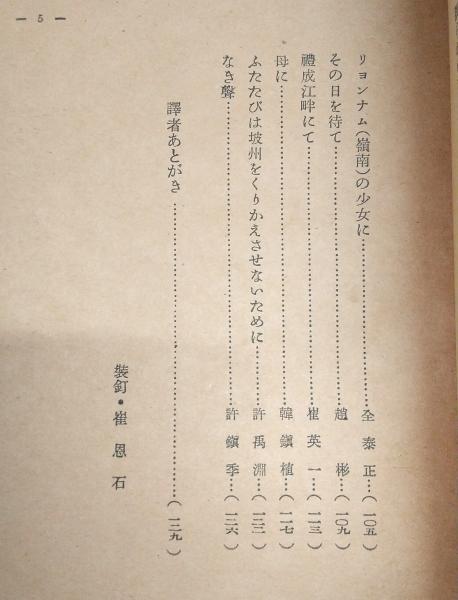 — 5 —
リョンナム(嶺南)の少女に……………全泰正…(一〇五)
その日を待て……………趙 彬…(一〇九)
禮成江畔にて……………崔英一…(一一三)
母に……………韓鎭植…(一一七)
ふたたびは坡州をくりかえさせないために………許禹淵…(一二二)
なき聲……………許鎭季…(一二六)
譯者あとがき……………(一二九)
裝釘・崔恩石